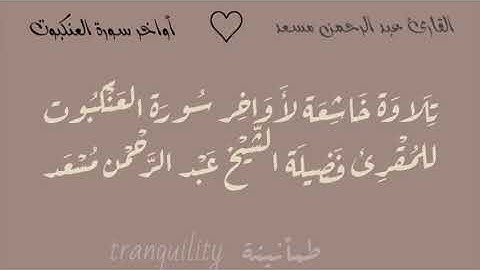 القارئ عبد الرحمن مسعد أواخر سورة العنكبوت
تِلَاوَة خَاشِعَة لأَوَاخِر سُورَة العَنْكَبُوت
للمُقْرِئ فَضِيلَة الشَّيْخ عَبْد الرَّحْمن مُسْعَد
طمأنينة tranquility